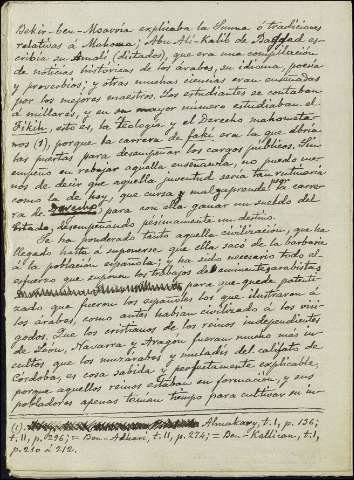 Bekir-ben-Moavia explicaba la Sunna ó tradiciones
relativas á Mahoma; Abu-Alí-Kalib de Bagdad es-
cribia su Amalí (dictados), que era una compilación
de noticias históricas de los árabes, su idioma, poesía
y proverbios; y otras muchas ciencias eran enseñadas
por los mejores maestros. Los estudiantes se contaban
á millares, y en su mayor número estudiaban el
Fikih, esto es, la Teología y el Derecho mahometa-
nos (1), porque la carrera de fakí era la que abria
las puertas para desempeñar los cargos públicos. Sin
empeño en rebajar aquella enseñanza, no puedo me-
nos de decir que aquella juventud seria tan rutinaria
como la de hoy, que cursa y mal aprende la carre-
ra de Derecho, para con ella ganar un sueldo del
Estado, desempeñando pesimamente un destino.
Se ha ponderado tanto aquella civilización, que ha
llegado hasta á suponerse que ella sacó de la barbarie
á la población española; y ha sido necesario todo el
esfuerzo que suponen los trabajos de eminentes arabistas
para que quede patenti-
zado que fueron los españoles los que ilustraron á
los árabes, como antes habian civilizado á los visi-
godos. Que los cristianos de los reinos independientes
de León, Navarra y Aragon fueran mucho más in-
cultos que los muzárabes y muladíes del califato de
Córdoba, es cosa sabida y perfectamente explicable,
porque aquellos reinos estaban en formación, y sus
pobladores apenas tenían tiempo para cultivar su in-
(1). Almakary, t. I, p. 136;
t. II, p. 296; = Ben-Adhari, t. II, p. 274; = Ben-Kallican, t. I,
p. 210 á 212.